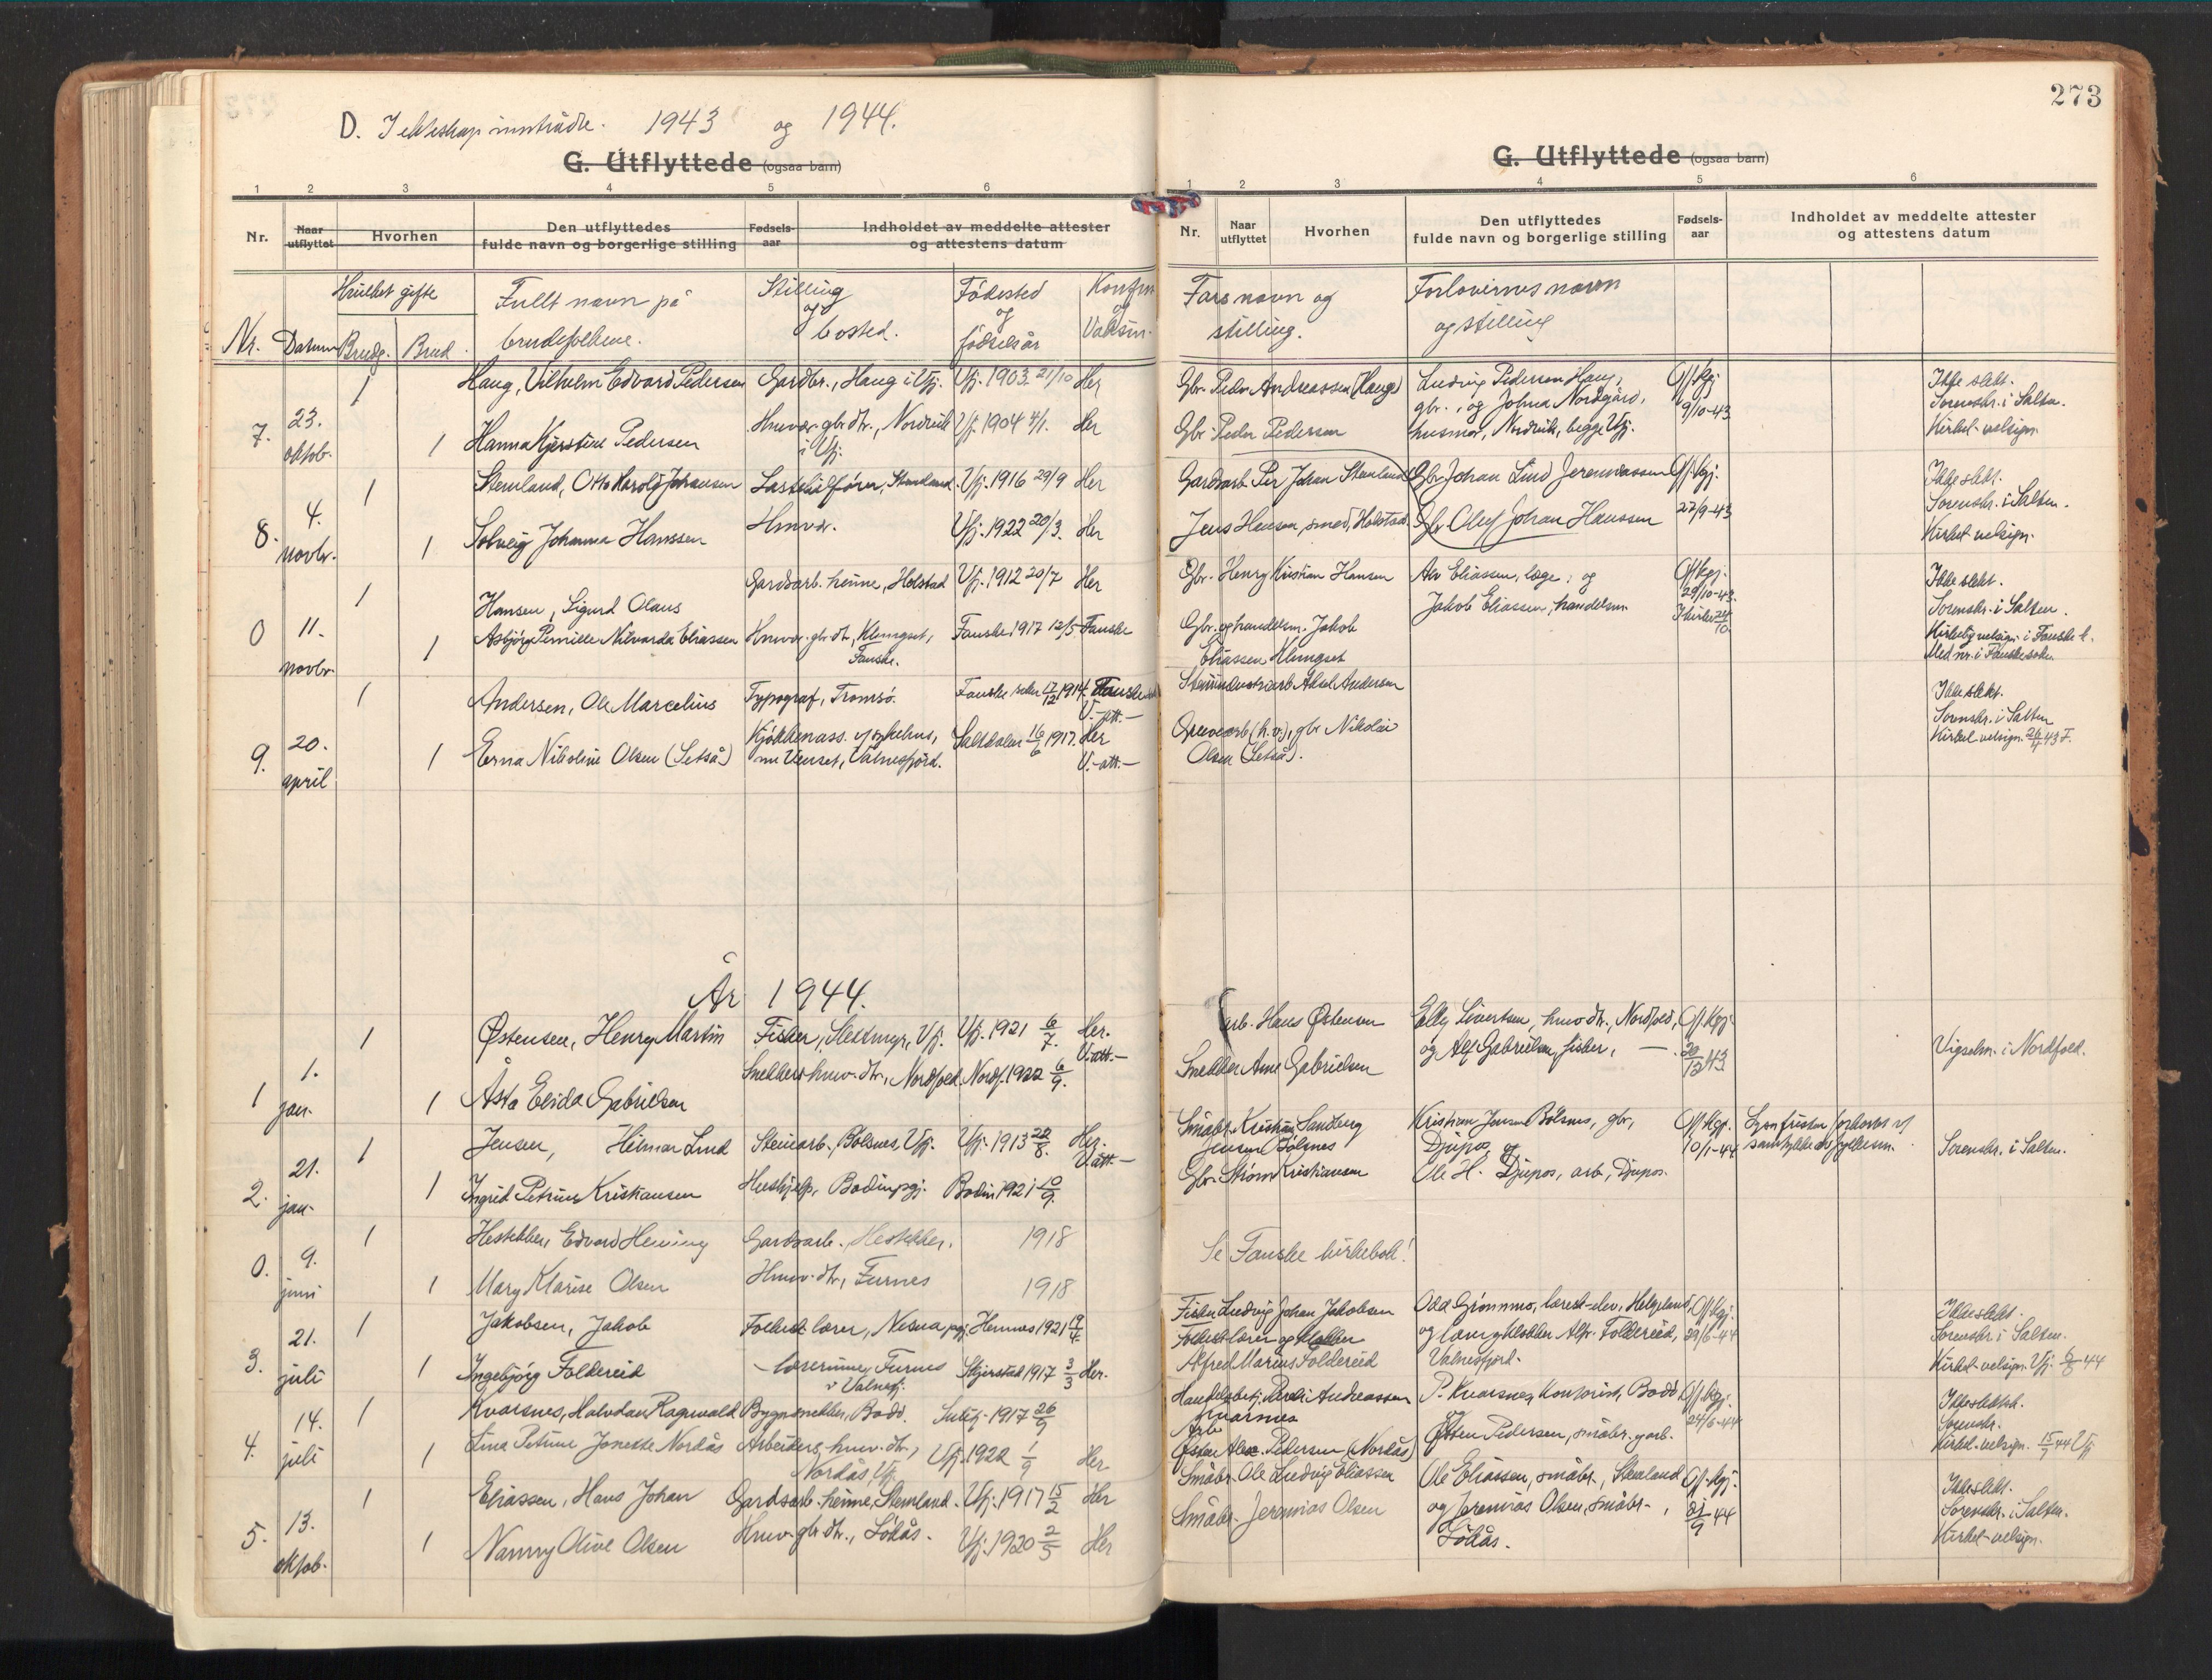 273
D. I ekteskap inntrådte. 1943 og 1944.
G. Utflyttede (ogsaa barn)
1 2 3 4 5 6
Nr.
Naar utflyttet
Hvorhen
Den utflyttedes
fulde navn og borgerlige stilling
Fødsels-
aar
Indholdet av meddelte attester
og attestens datum
Nr. Datum
Hvilket gifte
Brudg. Brud.
Fullt navn på
brudefolkene.
Stilling
og
bosted.
Fødested
og
fødselsår
Konfirm
og
Vaksin.
7. 23. oktob.
1 Haug, Vilhelm Edvard Pedersen Gardbr., Haug i Vfj. Vfj. 1903 21/10 Her
1 Hanna Kjerstine Pedersen Hmvr. gbr. dtr., Nordvik i Vfj. Vfj. 1904 4/1. Her
8. 4. novbr.
1 Stemland, Otto Harold Johansen Lastebilfører, Stemland Vfj. 1916 29/9 Her
1 Solveig Johanna Hanssen Hmvr. Vfj. 1922 20/3. Her
0 11. novbr.
1 Hansen, Sigurd Olaus Gardsarb. heime, Holstad Vfj. 1912 20/7 Her
1 Asbjørg Pernille Nilvarda Eliassen Hmvr. gbr. dtr., Klungset, Fauske. Fauske 1917 12/5 Fauske
9. 20. april
1 Andersen, Ole Marcelius Typograf, Tromsø. Fauske 17/12 1914. Fauske
V.-att.-
1 Erna Nikoline Olsen (Setså) Kjøkkenass. v/ sykehus,
nu Venset, Valnesfjord. Saltdalen 16/6 1917. Her
V.-att.-
År 1944.
1 1. jan.
1 Østensen, Henry Martin Fisker, Slettmyr, Vfj. Vfj. 1921 6/7. Her.
V.att.-
1 Åsta Elida Gabrielsen Snekkers hmv. dtr., Nordfold. Nordf. 1922 6/9.
2. 21. jan.
1 Jensen, Hilmar Lind Steinarb., Bölsnes, Vfj. Vfj. 1913 22/8. Her.
V.att.-
1 Ingrid Petrine Kristiansen Hushjelp, Bodin pgj. Bodin 1921 10/9.
0. 9. juni
1 Hestekker, Edvard Hening Gardsarb. Hestekker. 1918
1 Mary Klarise Olsen Hmv. dtr, Furnes 1918
3. 21. juli
1 Jakobsen, Jakob Folkesk. lærer, Nesna pgj. Hemnes 1921 19/4.
1 Ingebjörg Foldereid - lærerinne, Furnes
i Valnesfj. Skjerstad 1917 3/3 Her.
4. 14. juli
1 Kvarsnes, Halvdan Ragnvald Bygnsnekker, Bodö. 1917 26/9
1 Lina Petrine Jonette Nordås Arbeiders hmv. dtr,
Nordås, Vfj. Vfj. 1922 1/9 Her
5. 13. oktob.
1 Eliassen, Hans Johan Gardsarb. heime, Stemland. Vfj. 1917 15/2 Her
1 Nanny Olive Olsen Hmv. gbr. dtr., Lökås. Vfj. 1920 2/5 Her
G. Utflyttede (ogsaa barn)
1 2 3 4 5 6
Nr.
Naar
utflyttet
Hvorhen
Den utflyttedes
fulde navn og borgerlige stilling
Fødsels-
aar
Indholdet av meddelte attester
og attestens datum
Fars navn og
stilling.
Forlovernes navn
og stilling
Gbr. Peder Andreassen (Haug) Ludvig Pedersen Haug, Off. kgj.
gbr., og Johna Nordgård, 9/10-43
Gbr. Peder Pedersen husmor, Nordvik, begge Vfj.
Ikke slekt.
Sorenskr. i Salten.
Kirkel. velsign.
Gardsarb. Per Johan Stemland Gbr. Johan Lind Jeremiassen Off. kgj.
Jens Hansen, smed, Holstad. Gbr. Oluf Johan Hanssen 27/9-43
Ikke slekt.
Sorenskr. i Salten.
Kirkel. velsign.
Gbr. Henry Kristian Hansen Alv Eliassen, læge, og Off. kgj.
Jakob Eliassen, handelsm. 29/10-43.
I kirke 24/10.
Gbr. og handelsm. Jakob
Eliassen Klungset
Ikke slekt.
Sorenskr. i Salten.
Kirkelig velsign. i Fauske k.
Med nr. i Fauske sokn.
Steinindustriarb. Aksel Andersen
Gruvearb. (h.v.), gbr. Nikolai
Olsen (Setså).
Ikke slekt.
Sorenskr. i Salten
Kirkel. velsign. 26/4 43 F.
Arb. Hans Østensen Elly Sivertsen, hmv. dtr., Nordfold, Off. kgj.
Snekker Arne Gabrielsen og Alf Gabrielsen, fisker, -. 20/12 43
Vigselm. i Nordfold.
Småbr. Kristian Sandberg
Jensen Bölsnes Kristian Jensen Bölsnes, gbr, Off. kgj.
Djupos, og 10/1-44
Gbr. Strøm Kristiansen Ole H. Djupos, arb., Djupos.
Lysn.fristen forkortet v/
samtykke av fylkesm.
Sorenskr. i Salten.
Se Fauske kirkebok!
Fisker Ludvig Johan Jakobsen Odd Grønmo, lærersk. elev, Helgeland, Off. kgj.
Folkesk. lærer og klokker og lærer og klokker Alfr. Foldereid, 29/6-44
Alfred Marius Foldereid Valnesfjord.
Ikke slekt.
Sorenskr. i Salten.
Kirkel. velsign. Vfj. 6/8 44
Handelsbetj. Andreassen
Kvarsnes P. Kvarsnes, Kontorist, Bodö Off. kgj.
og 24/6-44
Arb.
Østen Alex. Pedersen (Nordås) Østen Pedersen, småbr. g. arb.
Ikke slektsk.
Sorenskr.
Kirkel. velsign. 15/7 44 Vfj.
Småbr. Ole Ludvig Eliassen Ole Eliassen, småbr., Stemland Off. kgj.
Småbr. Jeremias Olsen og Jeremias Olsen, småbr., 21/9 44
Lökås.
Ikke slekt.
Sorenskr. i Salten.
Kirkel. velsign.